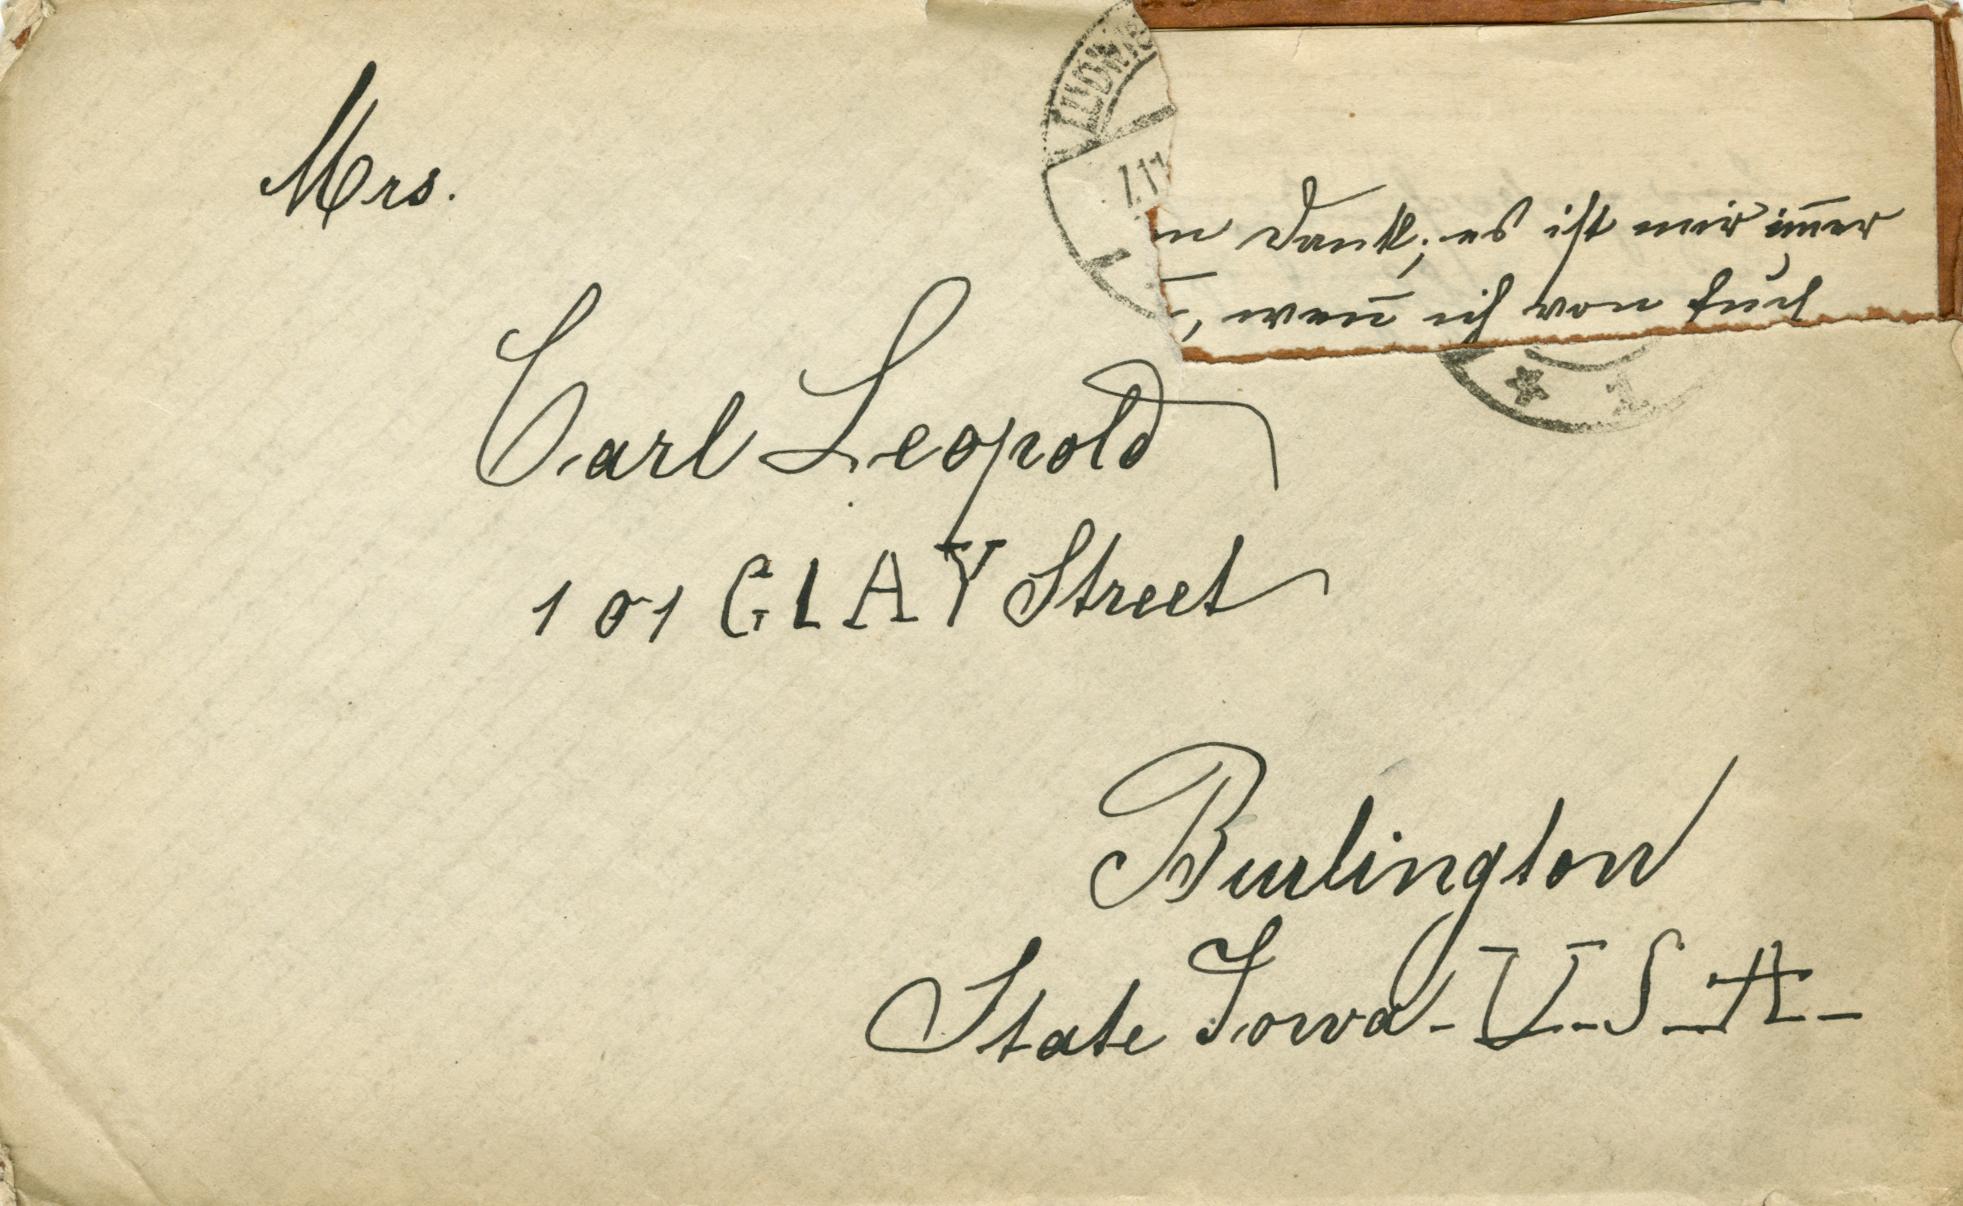 Mrs.
Carl Leopold
101 CLAY Street
Burlington
State Iowa - U. S. A. -
n Dank; es ist mir im̅er
, wen̅ ich von Euch
* 1